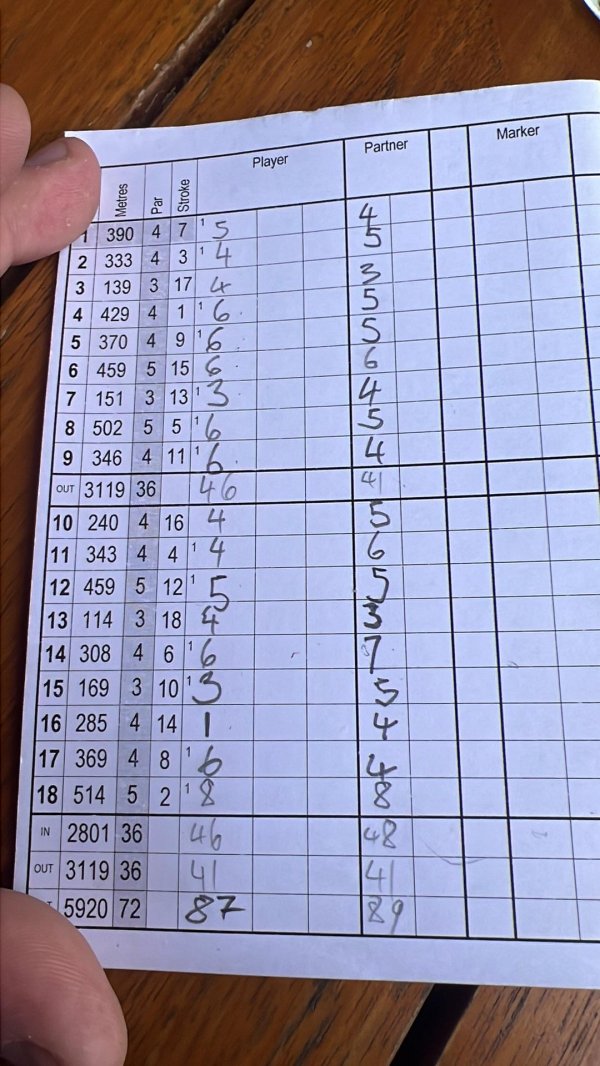 Metres Par Stroke Player Partner Marker
4
1 390 4 7 1 5 5
2 333 4 3 1 4
3 139 3 17 4 3
4 429 4 1 1 6 5
5 370 4 9 1 6 5
6 459 5 15 6 6
7 151 3 13 1 3 4
8 502 5 5 1 6 5
9 346 4 11 1 6 4
OUT 3119 36 46 41
10 240 4 16 4 5
11 343 4 4 1 4 6
12 459 5 12 1 5 5
13 114 3 18 4 3
14 308 4 6 1 6 7
15 169 3 10 1 3 5
16 285 4 14 1 4
17 369 4 8 1 6 4
18 514 5 2 1 8 8
IN 2801 36 46 48
OUT 3119 36 41 41
5920 72 87 89